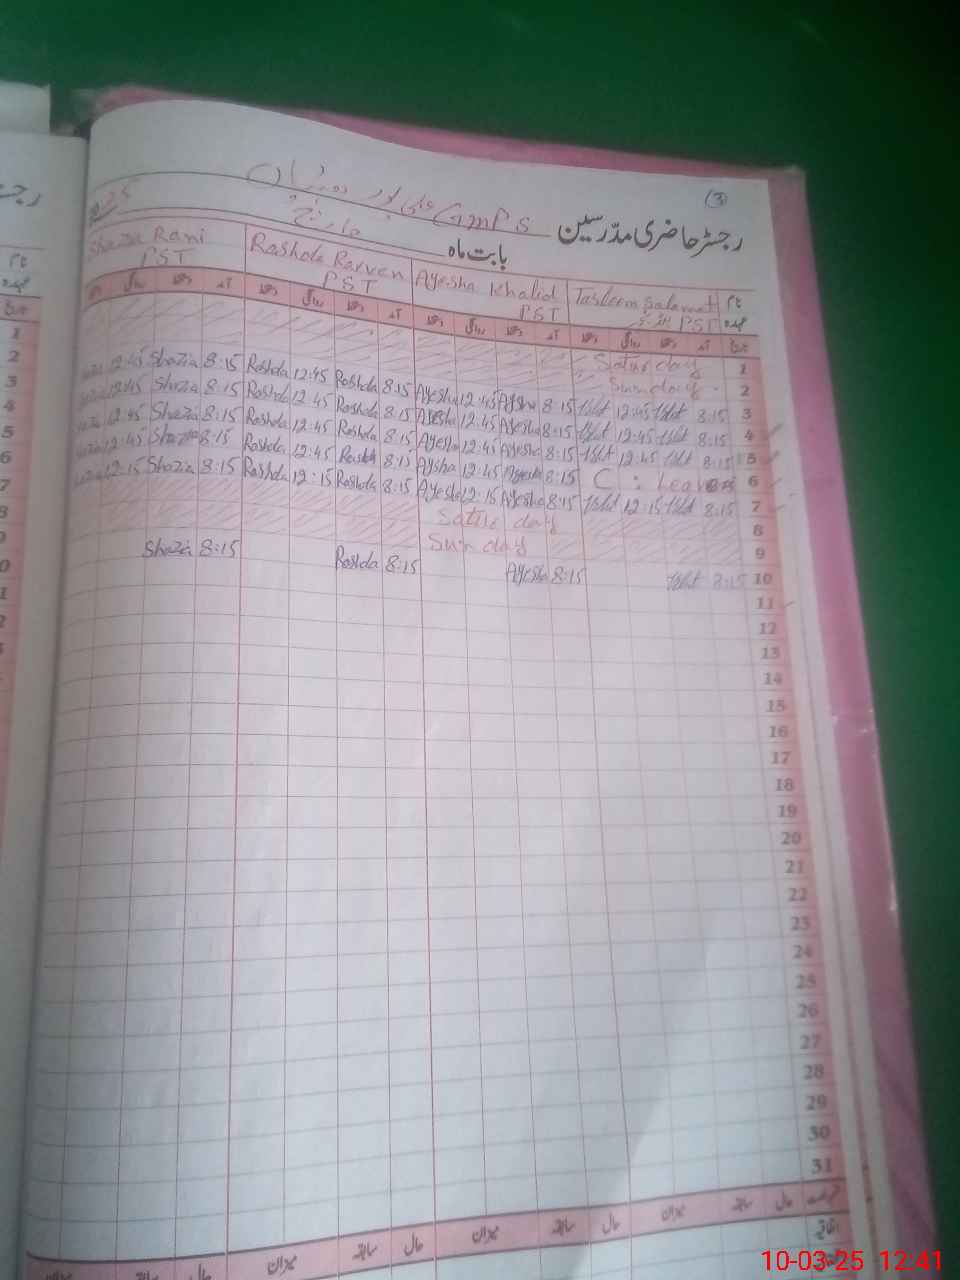 (3)
رجسٹر حاضری مدرسین GMPS علی پور
بابت ماہ مارچ 2025
نام Tasleem Salamat Ayesha Khalid Rashda Parven Shazia Rani
عہدہ PST PST PST PST
تاریخ آمد دستخط روانگی دستخط آمد دستخط روانگی دستخط آمد دستخط روانگی دستخط آمد دستخط روانگی
1 Saturday
2 Sunday
3 8:15 12:45 8:15 Ayesha 12:45 Ayesha 8:15 Rashda 12:45 Rashda 8:15 Shazia 12:45
4 8:15 12:45 8:15 Ayesha 12:45 Ayesha 8:15 Rashda 12:45 Rashda 8:15 Shazia 12:45
5 8:15 12:45 8:15 Ayesha 12:45 Ayesha 8:15 Rashda 12:45 Rashda 8:15 Shazia 12:45
6 C: Leave 8:15 Ayesha 12:45 Aysha 8:15 Rashda 12:45 Rashda 8:15 Shazia 12:45
7 8:15 12:15 8:15 Ayesha 12:15 Ayesha 8:15 Rashda 12:15 Rashda 8:15 Shazia 12:15
8 Saturday
9 Sunday
10 8:15 8:15 Ayesha 8:15 Rashda 8:15 Shazia
11
12
13
14
15
16
17
18
19
20
21
22
23
24
25
26
27
28
29
30
31
حال سابقہ میزان حال سابقہ میزان حال سابقہ میزان حال سابقہ میزان
10-03-25 12:41